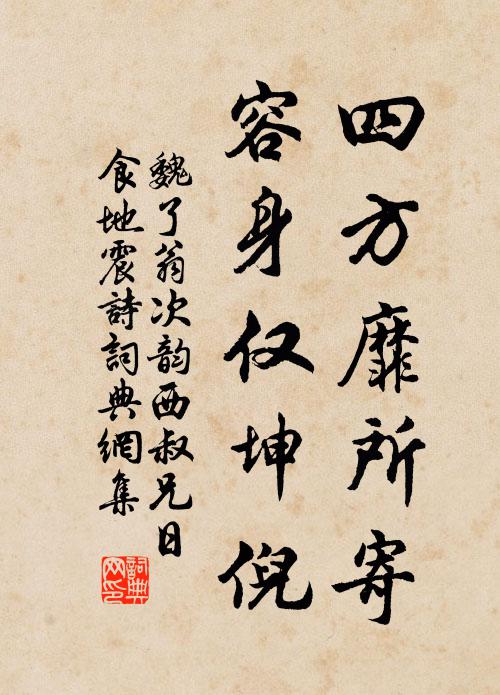 四方靡所寄
容身仅坤倪
魏了翁次韵西叔兄日
食地震詩詞典網集
詞典
网印